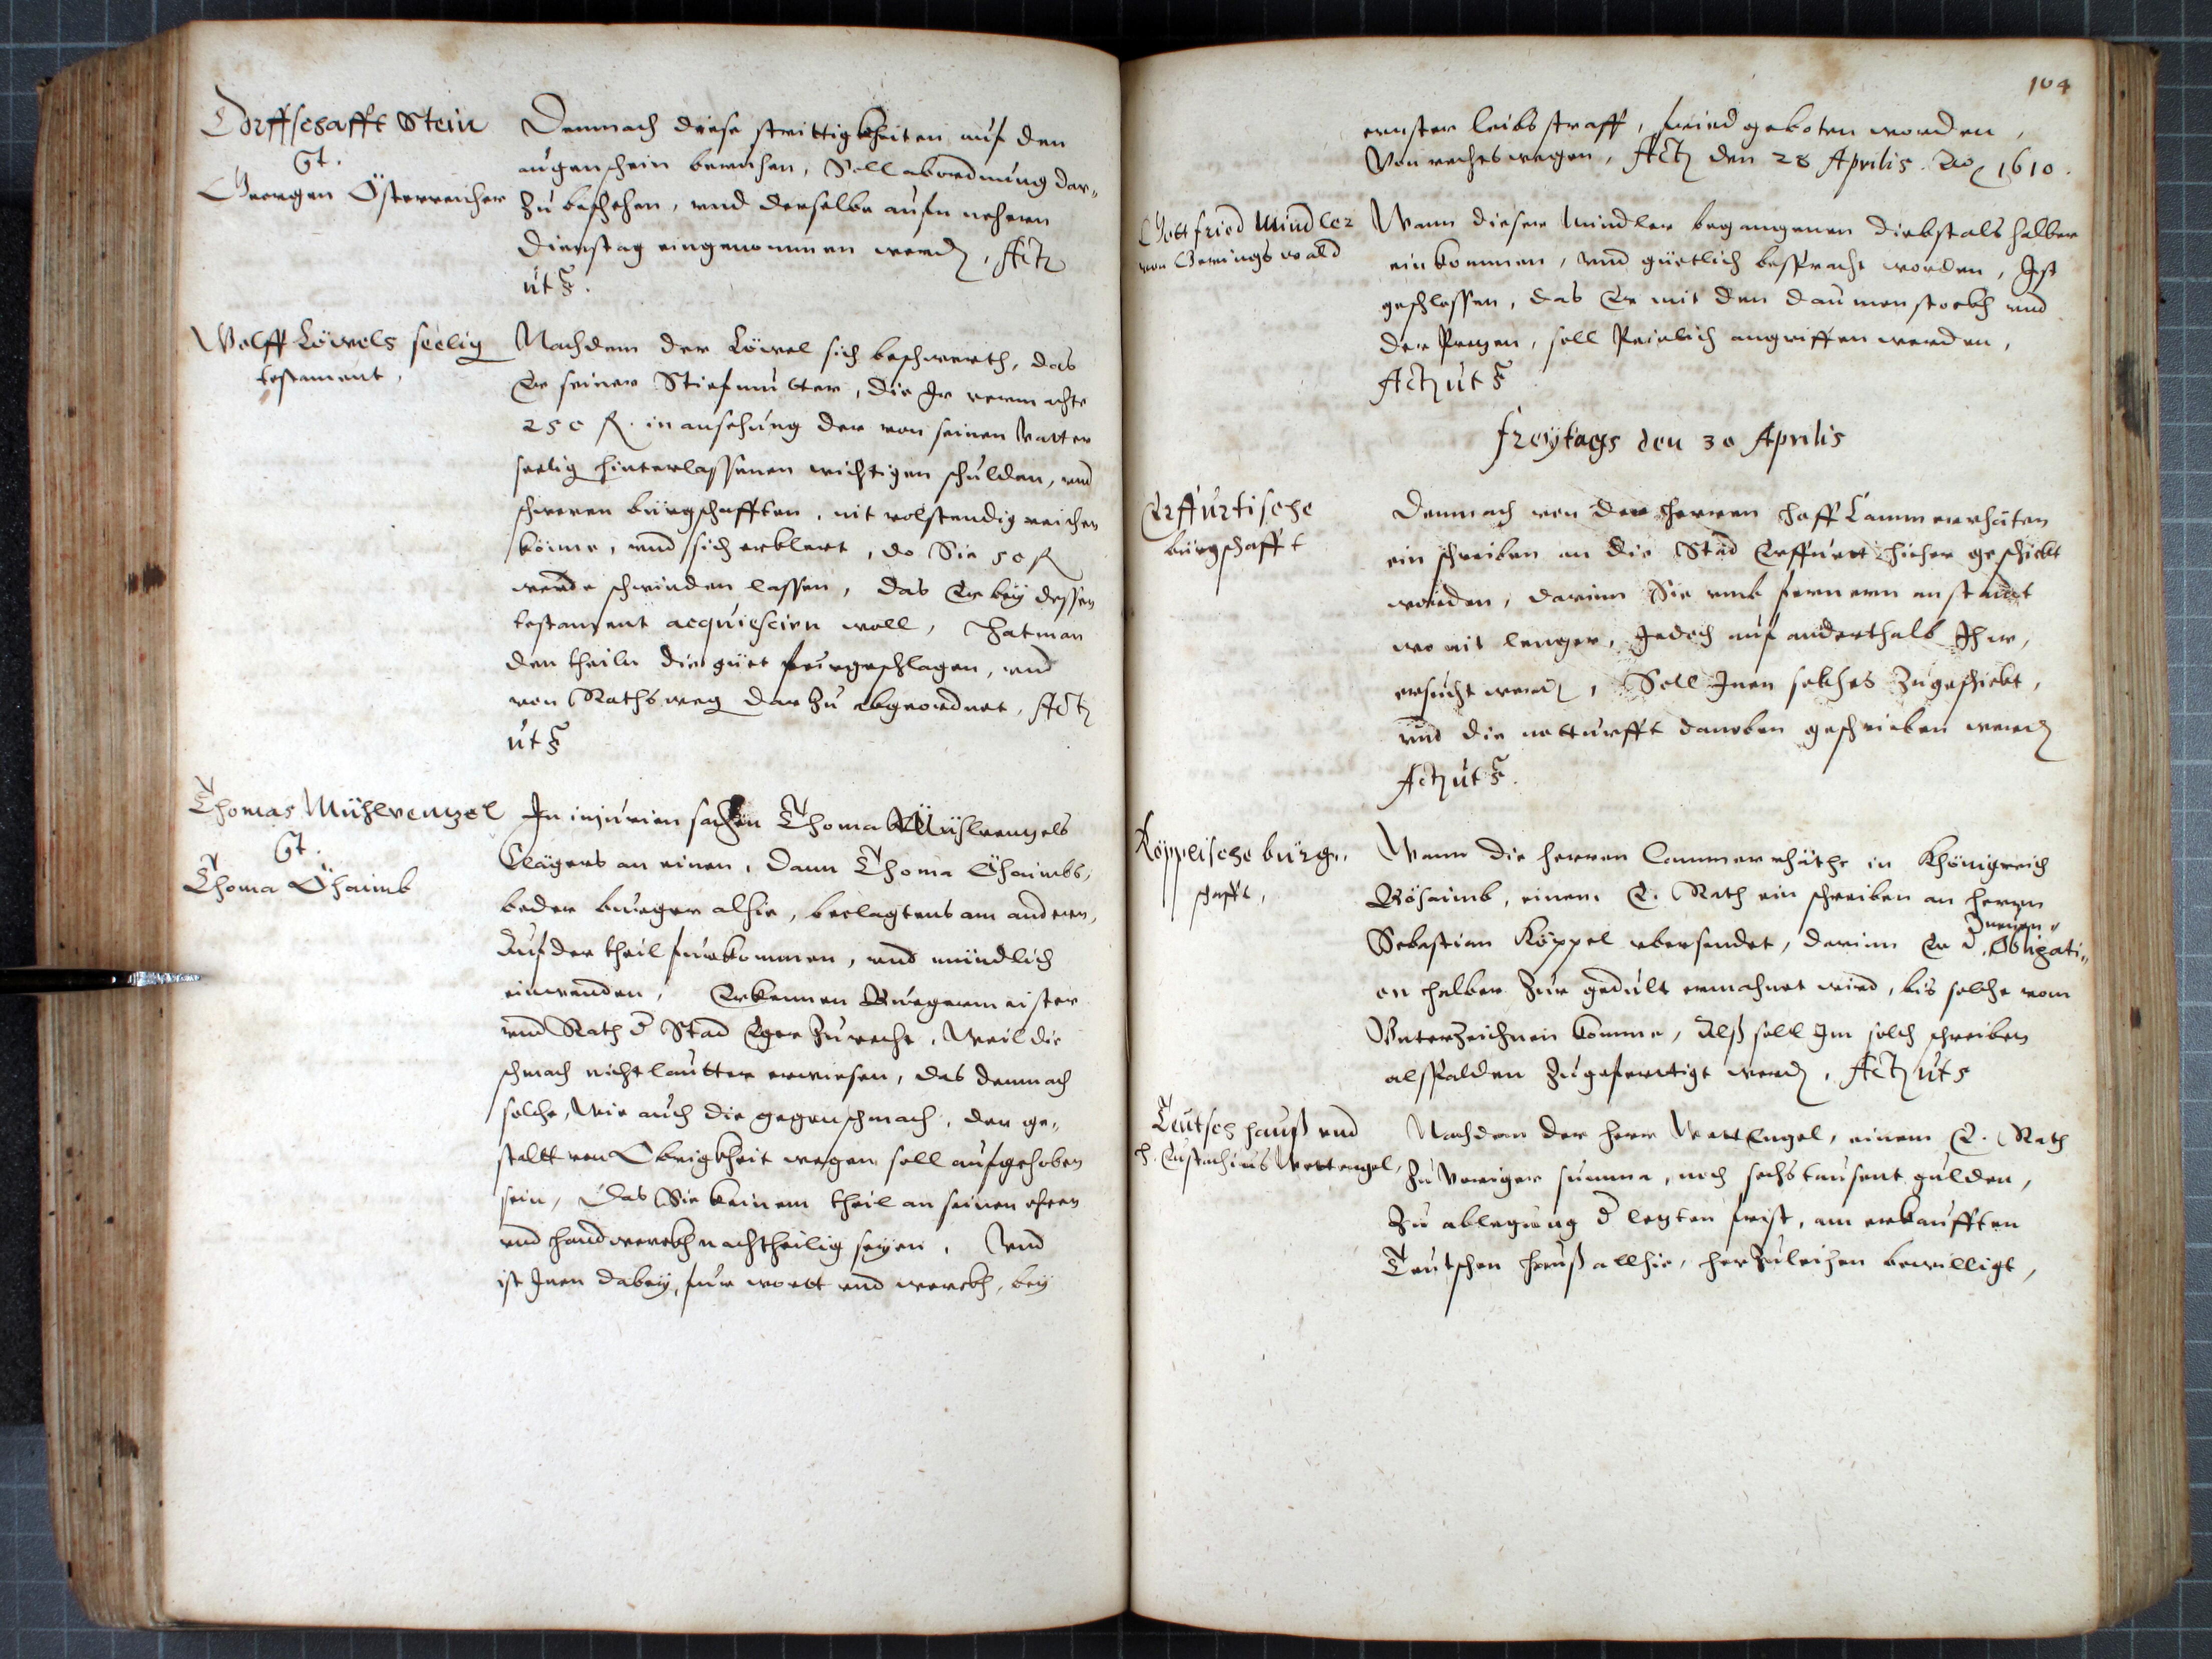 Dorffschafft Stein
Ct.
Georgen Österreicher
Demnach diese strittigkheiten auf den
augenschein beruhen, Soll abordnung dar„
Zu beschehen, vnd derselbe aufm nehern
Dienstag eingenommen werden, Act
ut s.
Wolff Löwels seelig
testament,
Nachdem der Löwel sich beschwerth, das
Er seiner Stiefmutter, die Ir vermachte
250 fl. in ansehung der von seinen Vatter
seelig hinterlassenen wichtigen schulden, vnd
schweren bürgschafften, nit volstendig reichen
könne, vnd sich erklert, do Sie 50 fl
werde schwinden lassen, das Er bey dessen
testament acquiescirn woll, Hat man
den theiln die güet furgeschlagen, vnd
von Raths weg darzu abgeordnet, Act
ut s
Thomas Mühlvenzel
Ct.
Thoma Öhaimb
In injurien sachen Thoma Mühlvenzels
Clägers an einen, dann Thoma Öhaimbs,
beder burger alhie, beclagtens am anderen,
Auf der theil furkommen, vnd mündlich
einwenden, Erkennen Burgermeister
vnd Rath d Stad Eger Zu recht, Weil die
schmach nicht lautter erwiesen, das demnach
solche, Wie auch die gegenschmach, der ge„
staltt von Obrigkheit wegen soll aufgehoben
sein, Das Sie keinem theil an seinen ehren
vnd handwerckh nachtheilig seyen, Vnd
ist Inen dabey, fur wortt vnd werckh, bey
104
ernster leibsstraff, fried geboten worden,
Von rechts wegen, Act den 28 Aprilis. Ao 1610.
Gottfried Mindler
von Geringswald
Wann dieser Mindler begangenen diebstals halber
einkommen, vnd güetlich bespracht worden, Ist
geschlossen, das Er mit den daumenstockh vnd
der Prezen, soll Peinlich angriffen werden,
Act ut s
freytags den 30 Aprilis
Erffurtische
bürgschafft
Demnach von den Herren Hoff Cammerrhäten
ein schreiben an die Stad Erffurtt hieher geschickt
worden, darinn Sie vmb fernern anstandt
wo nit lenger, Jedoch auf anderthalb Jhar,
ersucht werden, Soll Inen solches Zugeschickt,
vnd die notturfft daneben geschrieben werden
Act ut s.
Köppelische bürg„
schafft,
Wann die herren Cammerrhäthe in Khönigreich
Böhaimb, einem E. Rath ein schreiben an herren
Sebastian Köppel vbersendet, darinn Er d Obligati„
on halber Zur gedult ermahnet wird, bis solche vom
Vnterzeichnen komme, Alß soll Im solch schreiben
alßbalden Zugefertigt werden, Act ut s
Teutsch hauß vnd
H. Eustachius Wertengel,
Nachdem der Herr Wertengel, einem E. Rath
Zu Voriger summa, noch sechs tausent gulden,
Zu ablegung d lezten frist, am erkaufften
Teutschen Hauß allhie, herzuleihen bewilligt,